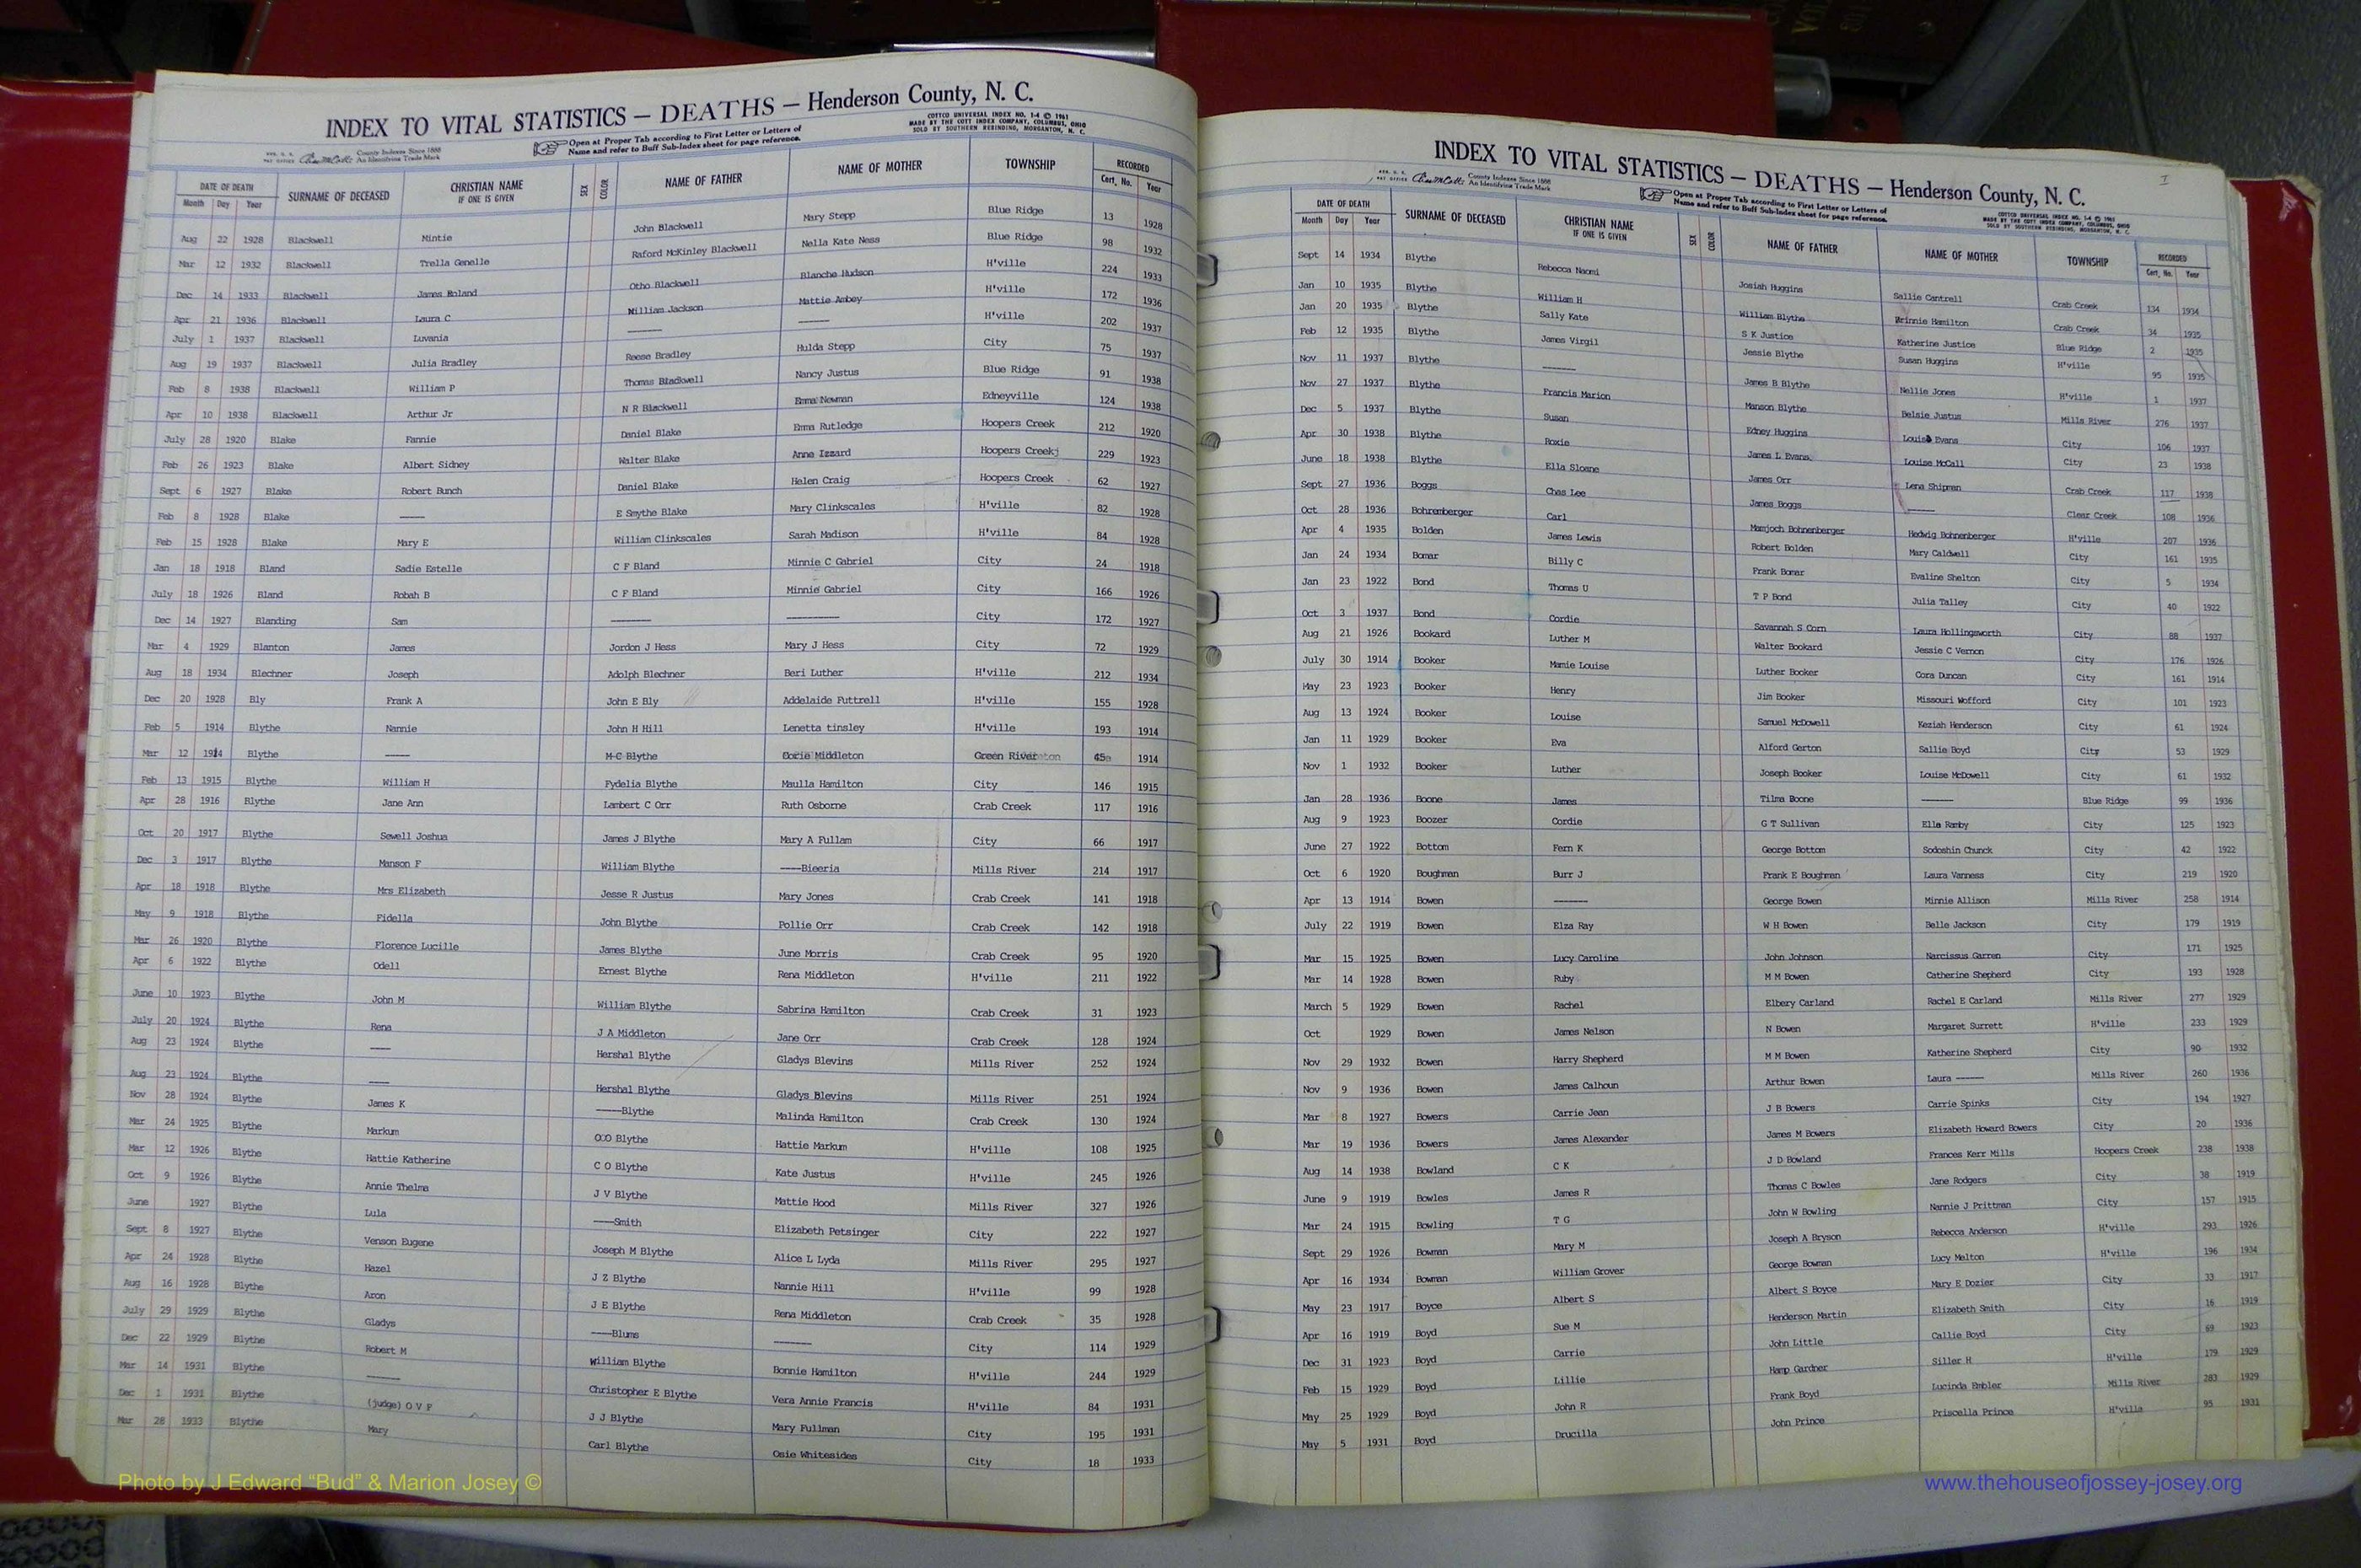 INDEX TO VITAL STATISTICS — DEATHS — Henderson County, N. C.
COTTCO UNIVERSAL INDEX NO. 1-4 © 1961
MADE BY THE COTT INDEX COMPANY, COLUMBUS, OHIO
SOLD BY SOUTHERN REBINDING, MORGANTON, N. C.
County Indexes Since 1888
An Identifying Trade Mark
Open at Proper Tab according to First Letter or Letters of
Name and refer to Buff Sub-Index sheet for page reference.
DATE OF DEATH SURNAME OF DECEASED CHRISTIAN NAME IF ONE IS GIVEN SEX COLOR NAME OF FATHER NAME OF MOTHER TOWNSHIP RECORDED
Month Day Year Cert. No. Year
Aug 22 1928 Blackwell Mintie John Blackwell Mary Stepp Blue Ridge 13 1928
Mar 12 1932 Blackwell Trella Genelle Raford McKinley Blackwell Nella Kate Ness Blue Ridge 98 1932
Dec 14 1933 Blackwell James Roland Otho Blackwell Blanche Hudson H'ville 224 1933
Apr 21 1936 Blackwell Laura C William Jackson Mattie Ambey H'ville 172 1936
July 1 1937 Blackwell Luvania ------ ------ H'ville 202 1937
Aug 19 1937 Blackwell Julia Bradley Reese Bradley Hulda Stepp City 75 1937
Feb 8 1938 Blackwell William P Thomas Blackwell Nancy Justus Blue Ridge 91 1938
Apr 10 1938 Blackwell Arthur Jr N R Blackwell Emma Newman Edneyville 124 1938
July 28 1920 Blake Fannie Daniel Blake Emma Rutledge Hoopers Creek 212 1920
Feb 26 1923 Blake Albert Sidney Walter Blake Anne Izzard Hoopers Creekj 229 1923
Sept 6 1927 Blake Robert Bunch Daniel Blake Helen Craig Hoopers Creek 62 1927
Feb 8 1928 Blake ----- E Smythe Blake Mary Clinkscales H'ville 82 1928
Feb 15 1928 Blake Mary E William Clinkscales Sarah Madison H'ville 84 1928
Jan 18 1918 Bland Sadie Estelle C F Bland Minnie C Gabriel City 24 1918
July 18 1926 Bland Robah B C F Bland Minnie Gabriel City 166 1926
Dec 14 1927 Blanding Sam -------- ---------- City 172 1927
Mar 4 1929 Blanton James Jordon J Hess Mary J Hess City 72 1929
Aug 18 1934 Blechner Joseph Adolph Blechner Beri Luther H'ville 212 1934
Dec 20 1928 Bly Frank A John E Bly Addelaide Futtrell H'ville 155 1928
Feb 5 1914 Blythe Nannie John H Hill Lenetta tinsley H'ville 193 1914
Mar 12 1914 Blythe ----- M C Blythe Middleton Green River 45 1914
Feb 13 1915 Blythe William H Fydelia Blythe Maulla Hamilton City 146 1915
Apr 28 1916 Blythe Jane Ann Lambert C Orr Ruth Osborne Crab Creek 117 1916
Oct 20 1917 Blythe Sewell Joshua James J Blythe Mary A Fullam City 66 1917
Dec 3 1917 Blythe Manson F William Blythe ----Bieeria Mills River 214 1917
Apr 18 1918 Blythe Mrs Elizabeth Jesse R Justus Mary Jones Crab Creek 141 1918
May 9 1918 Blythe Fidella John Blythe Pollie Orr Crab Creek 142 1918
Mar 26 1920 Blythe Florence Lucille James Blythe June Morris Crab Creek 95 1920
Apr 6 1922 Blythe Odell Ernest Blythe Rena Middleton H'ville 211 1922
June 10 1923 Blythe John M William Blythe Sabrina Hamilton Crab Creek 31 1923
July 20 1924 Blythe Rena J A Middleton Jane Orr Crab Creek 128 1924
Aug 23 1924 Blythe ---- Hershal Blythe Gladys Blevins Mills River 252 1924
Aug 23 1924 Blythe ---- Hershal Blythe Gladys Blevins Mills River 251 1924
Nov 28 1924 Blythe James K -----Blythe Malinda Hamilton Crab Creek 130 1924
Mar 24 1925 Blythe Markum Blythe Hattie Markum H'ville 108 1925
Mar 12 1926 Blythe Hattie Katherine C O Blythe Kate Justus H'ville 245 1926
Oct 9 1926 Blythe Annie Thelma J V Blythe Mattie Hood Mills River 327 1926
June 1927 Blythe Lula ----Smith Elizabeth Petsinger City 222 1927
Sept 8 1927 Blythe Venson Eugene Joseph M Blythe Alice L Lyda Mills River 295 1927
Apr 24 1928 Blythe Hazel J Z Blythe Nannie Hill H'ville 99 1928
Aug 16 1928 Blythe Aron J E Blythe Rena Middleton Crab Creek 35 1928
July 29 1929 Blythe Gladys ----Blums ------- City 114 1929
Dec 22 1929 Blythe Robert M William Blythe Bonnie Hamilton H'ville 244 1929
Mar 14 1931 Blythe ------ Christopher E Blythe Vera Annie Francis H'ville 84 1931
Dec 1 1931 Blythe (judge) O V F J J Blythe Mary Fullman City 195 1931
Mar 28 1933 Blythe Mary Carl Blythe Osie Whitesides City 18 1933
INDEX TO VITAL STATISTICS — DEATHS — Henderson County, N. C.
County Indexes Since 1888
An Identifying Trade Mark
Open at Proper Tab according to First Letter or Letters of
Name and refer to Buff Sub-Index sheet for page reference.
COTTCO UNIVERSAL INDEX NO. 1-4 © 1961
MADE BY THE COTT INDEX COMPANY, COLUMBUS, OHIO
SOLD BY SOUTHERN REBINDING, MORGANTON, N. C.
DATE OF DEATH SURNAME OF DECEASED CHRISTIAN NAME IF ONE IS GIVEN SEX COLOR NAME OF FATHER NAME OF MOTHER TOWNSHIP RECORDED
Month Day Year Cert. No. Year
Sept 14 1934 Blythe Rebecca Naomi Josiah Huggins Sallie Cantrell Crab Creek 134 1934
Jan 10 1935 Blythe William H William Blythe Hamilton Crab Creek 34 1935
Jan 20 1935 Blythe Sally Kate S K Justice Katherine Justice Blue Ridge 2 1935
Feb 12 1935 Blythe James Virgil Jessie Blythe Susan Huggins H'ville 95 1935
Nov 11 1937 Blythe ------ James B Blythe Nellie Jones H'ville 1 1937
Nov 27 1937 Blythe Francis Marion Manson Blythe Belsie Justus Mills River 276 1937
Dec 5 1937 Blythe Susan Edney Huggins Evans City 106 1937
Apr 30 1938 Blythe Roxie James L Evans Louise McCall City 23 1938
June 18 1938 Blythe Ella Sloane James Orr Lena Shipman Crab Creek 117 1938
Sept 27 1936 Boggs Chas Lee James Boggs ----- Clear Creek 108 1936
Oct 28 1936 Bohrenberger Carl Mamjoch Bohnenberger Hedwig Bohnenberger H'ville 207 1936
Apr 4 1935 Bolden James Lewis Robert Bolden Mary Caldwell City 161 1935
Jan 24 1934 Bomar Billy C Frank Bomar Evaline Shelton City 5 1934
Jan 23 1922 Bond Thomas U T P Bond Julia Talley City 40 1922
Oct 3 1937 Bond Cordie Savannah S Corn Laura Hollingsworth City 88 1937
Aug 21 1926 Bookard Luther M Walter Bookard Jessie C Vernon City 176 1926
July 30 1914 Booker Mamie Louise Luther Booker Cora Duncan City 161 1914
May 23 1923 Booker Henry Jim Booker Missouri Wofford City 101 1923
Aug 13 1924 Booker Louise Samuel McDowell Keziah Henderson City 61 1924
Jan 11 1929 Booker Eva Alford Gerton Sallie Boyd City 53 1929
Nov 1 1932 Booker Luther Joseph Booker Louise McDowell City 61 1932
Jan 28 1936 Boone James Tilma Boone ------ Blue Ridge 99 1936
Aug 9 1923 Boozer Cordie G T Sullivan Ella Ramby City 125 1923
June 27 1922 Bottom Fern K George Bottom Sodoshin Chunck City 42 1922
Oct 6 1920 Boughman Burr J Frank E Boughman Laura Vanness City 219 1920
Apr 13 1914 Bowen ------ George Bowen Minnie Allison Mills River 258 1914
July 22 1919 Bowen Elza Ray W H Bowen Belle Jackson City 179 1919
Mar 15 1925 Bowen Lucy Caroline John Johnson Narcissus Garren City 171 1925
Mar 14 1928 Bowen Ruby M M Bowen Catherine Shepherd City 193 1928
March 5 1929 Bowen Rachel Elbery Carland Rachel E Carland Mills River 277 1929
Oct 1929 Bowen James Nelson N Bowen Margaret Surrett H'ville 233 1929
Nov 29 1932 Bowen Harry Shepherd M M Bowen Katherine Shepherd City 90 1932
Nov 9 1936 Bowen James Calhoun Arthur Bowen Laura ----- Mills River 260 1936
Mar 8 1927 Bowers Carrie Jean J B Bowers Carrie Spinks City 194 1927
Mar 19 1936 Bowers James Alexander James M Bowers Elizabeth Howard Bowers City 20 1936
Aug 14 1938 Bowland C K J D Bowland Frances Kerr Mills Hoopers Creek 238 1938
June 9 1919 Bowles James R Thomas C Bowles Jane Rodgers City 38 1919
Mar 24 1915 Bowling T G John W Bowling Nannie J Prittman City 157 1915
Sept 29 1926 Bowman Mary M Joseph A Bryson Rebecca Anderson H'ville 293 1926
Apr 16 1934 Bowman William Grover George Bowman Lucy Melton H'ville 196 1934
May 23 1917 Boyce Albert S Albert S Boyce Mary E Dozier City 33 1917
Apr 16 1919 Boyd Sue M Henderson Martin Elizabeth Smith City 16 1919
Dec 31 1923 Boyd Carrie John Little Callie Boyd City 69 1923
Feb 15 1929 Boyd Lillie Hamp Gardner Siller H H'ville 179 1929
May 25 1929 Boyd John R Frank Boyd Lucinda Embler Mills River 283 1929
May 5 1931 Boyd Drucilla John Prince Priscella Prince H'ville 95 1931
Photo by J Edward “Bud” & Marion Josey ©
www.thehouseofjossey-josey.org